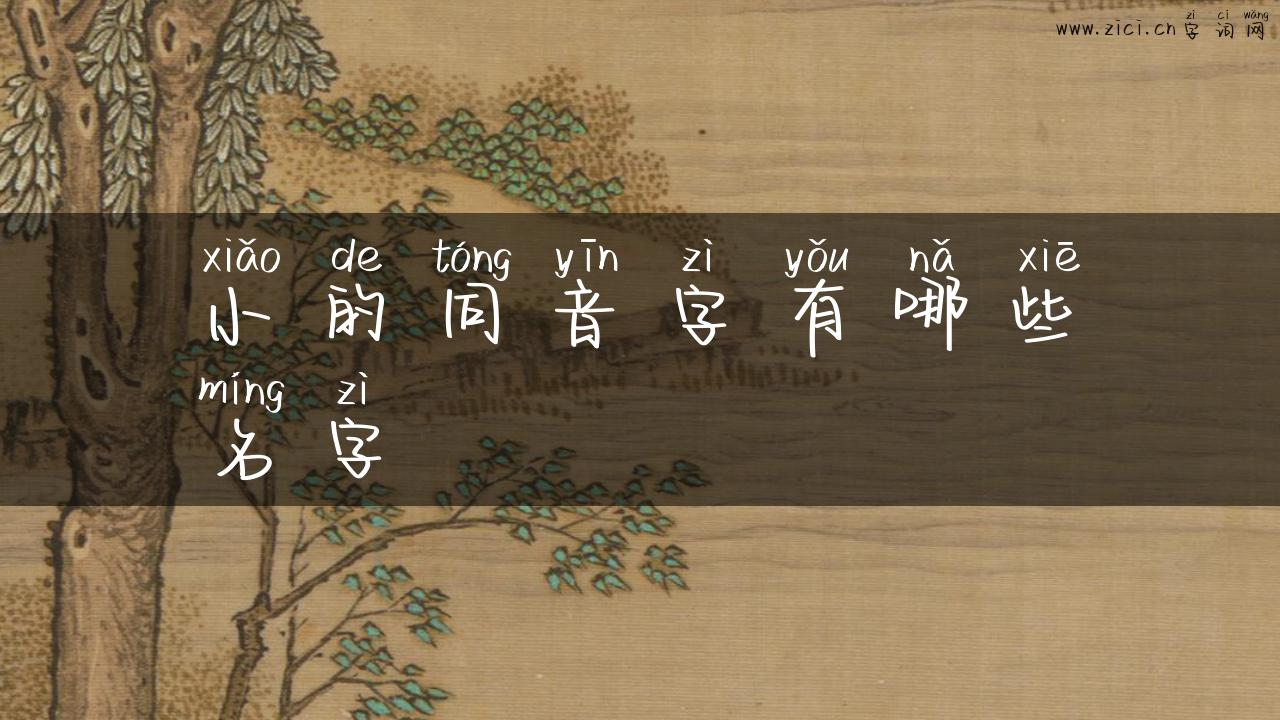 zì cí wǎng
www.zici.cn 字词网
xiǎo de tóng yīn zì yǒu nǎ xiē
小的同音字有哪些
míng zì
名字